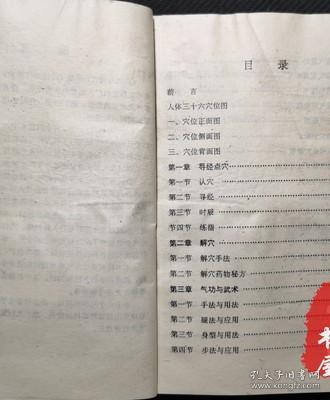 目 录
前 言
人体三十六穴位图
一、穴位正面图
二、穴位侧面图
三、穴位背面图
第一章 寻经点穴
第一节 认穴
第二节 寻经
第三节 时辰
节四节 练指
第二章 解穴
第一节 解穴手法
第二节 解穴药物秘方
第三章 气功与武术
第一节 手法与用法
第二节 腿法与应用
第三节 身型与用法
第四节 步法与应用
孔夫子旧书网